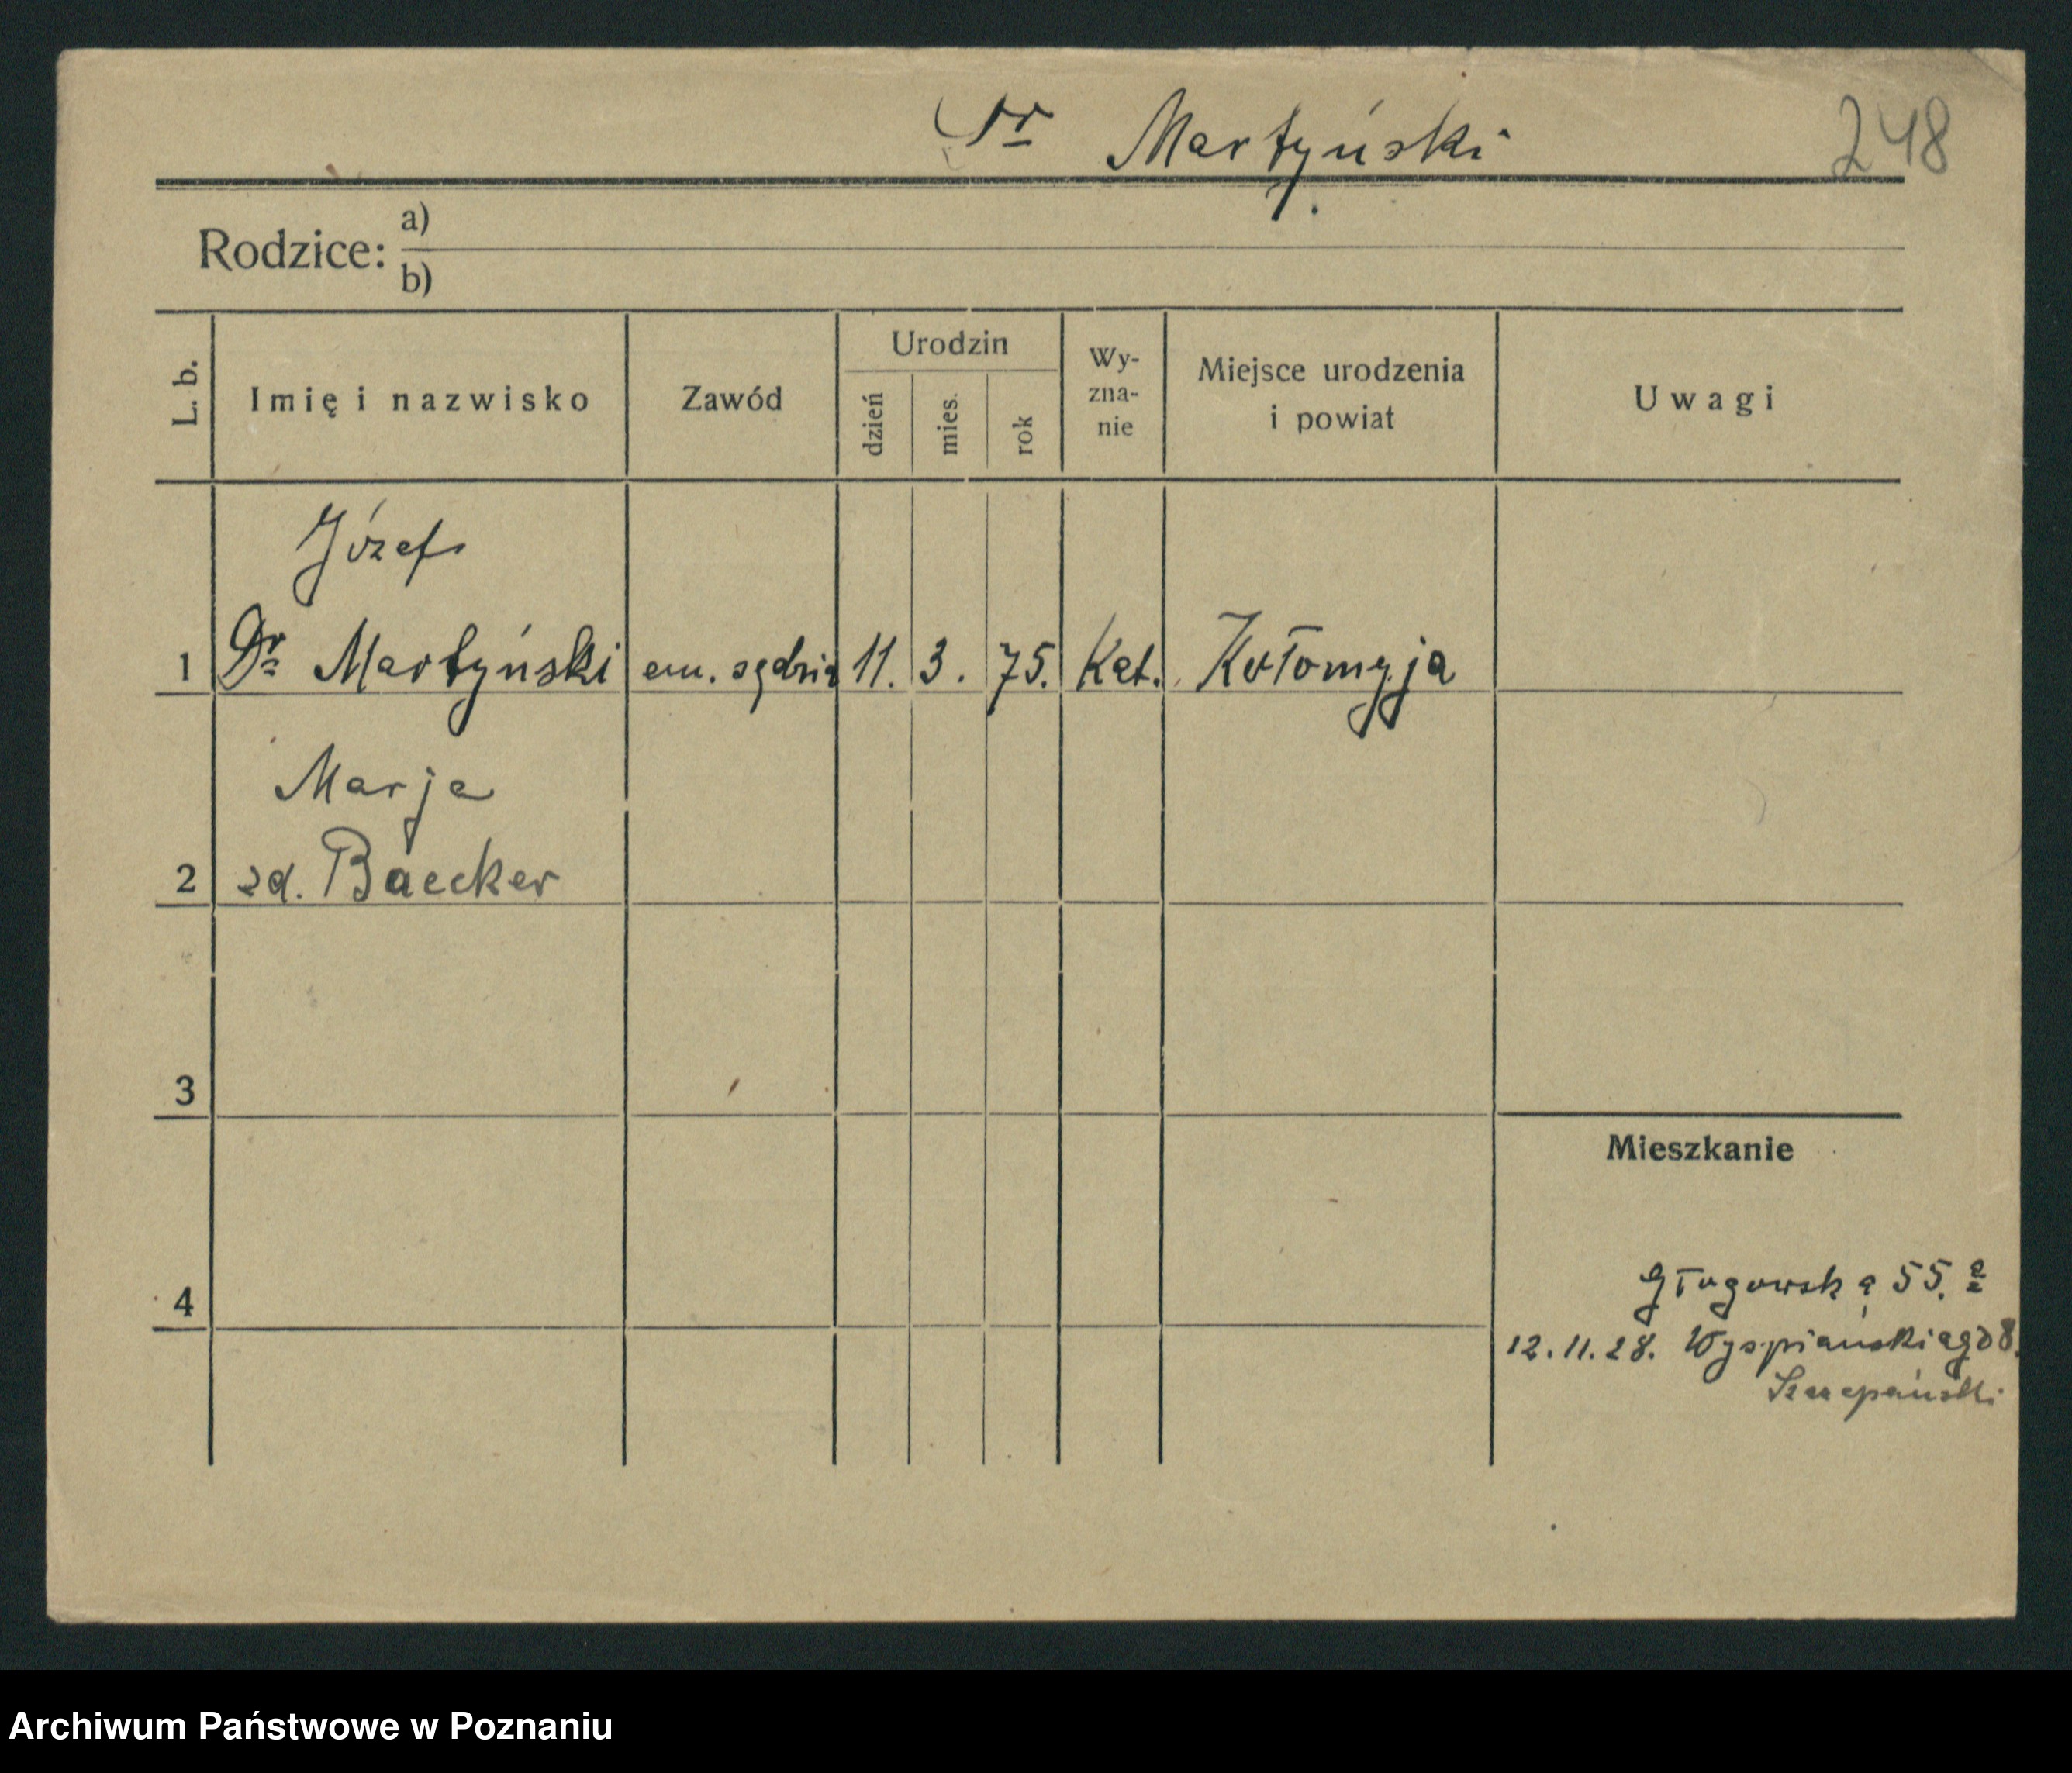 Dr Martyński 248
Rodzice: a)
b)
L. b.
Imię i nazwisko
Zawód
Urodzin
dzień
mies.
rok
Wy-
zna-
nie
Miejsce urodzenia
i powiat
Uwagi
Józef
1 Dr Martyński em. sędzia 11. 3. 75. Kat. Kołomyja
Marja
2 zd. Baecker
3
Mieszkanie
4
Głogowska 55.a
12.11.28. Wyspiańskiego 8.
Szczepański
Archiwum Państwowe w Poznaniu